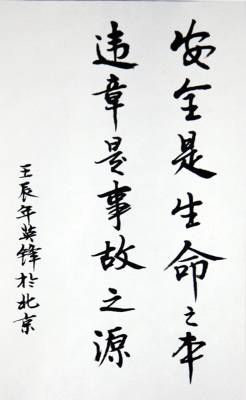 安全是生命之本
违章是事故之源
壬辰年英锋於北京